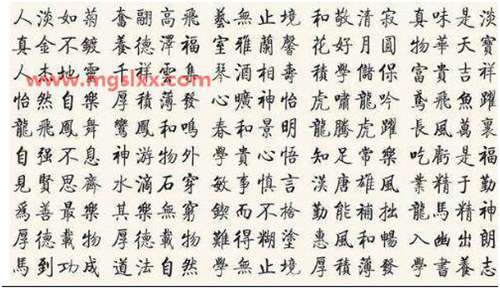 人淡如菊 奮翮高飛 藝無止境 和敬清寂 真味是淡
真金不鍍 養德澤福 室雅蘭馨 花好月圓 物華天寶
人杰地靈 千祥雲集 琴酒相壽 積學儲寶 富貴吉祥
www.mgslxx.com
怡然自樂 厚積薄發 心曠神怡 虎嘯龍吟 鳶飛魚躍
龍飛鳳舞 鸞鳳和鳴 春和景明 龍騰虎躍 長風萬裏
自强不息 神游物外 學貴心悟 知足常樂 吃虧是福
見賢思齊 水滴石穿 敏事慎言 漢唐雄風 業精于勤
爲善最樂 其樂無窮 鍥而不捨 勤能補拙 龍馬精神
厚德載物 厚德載物 難得糊塗 惠風和暢 入幽出朗
馬到功成 道法自然 學無止境 厚積薄發 學書養志